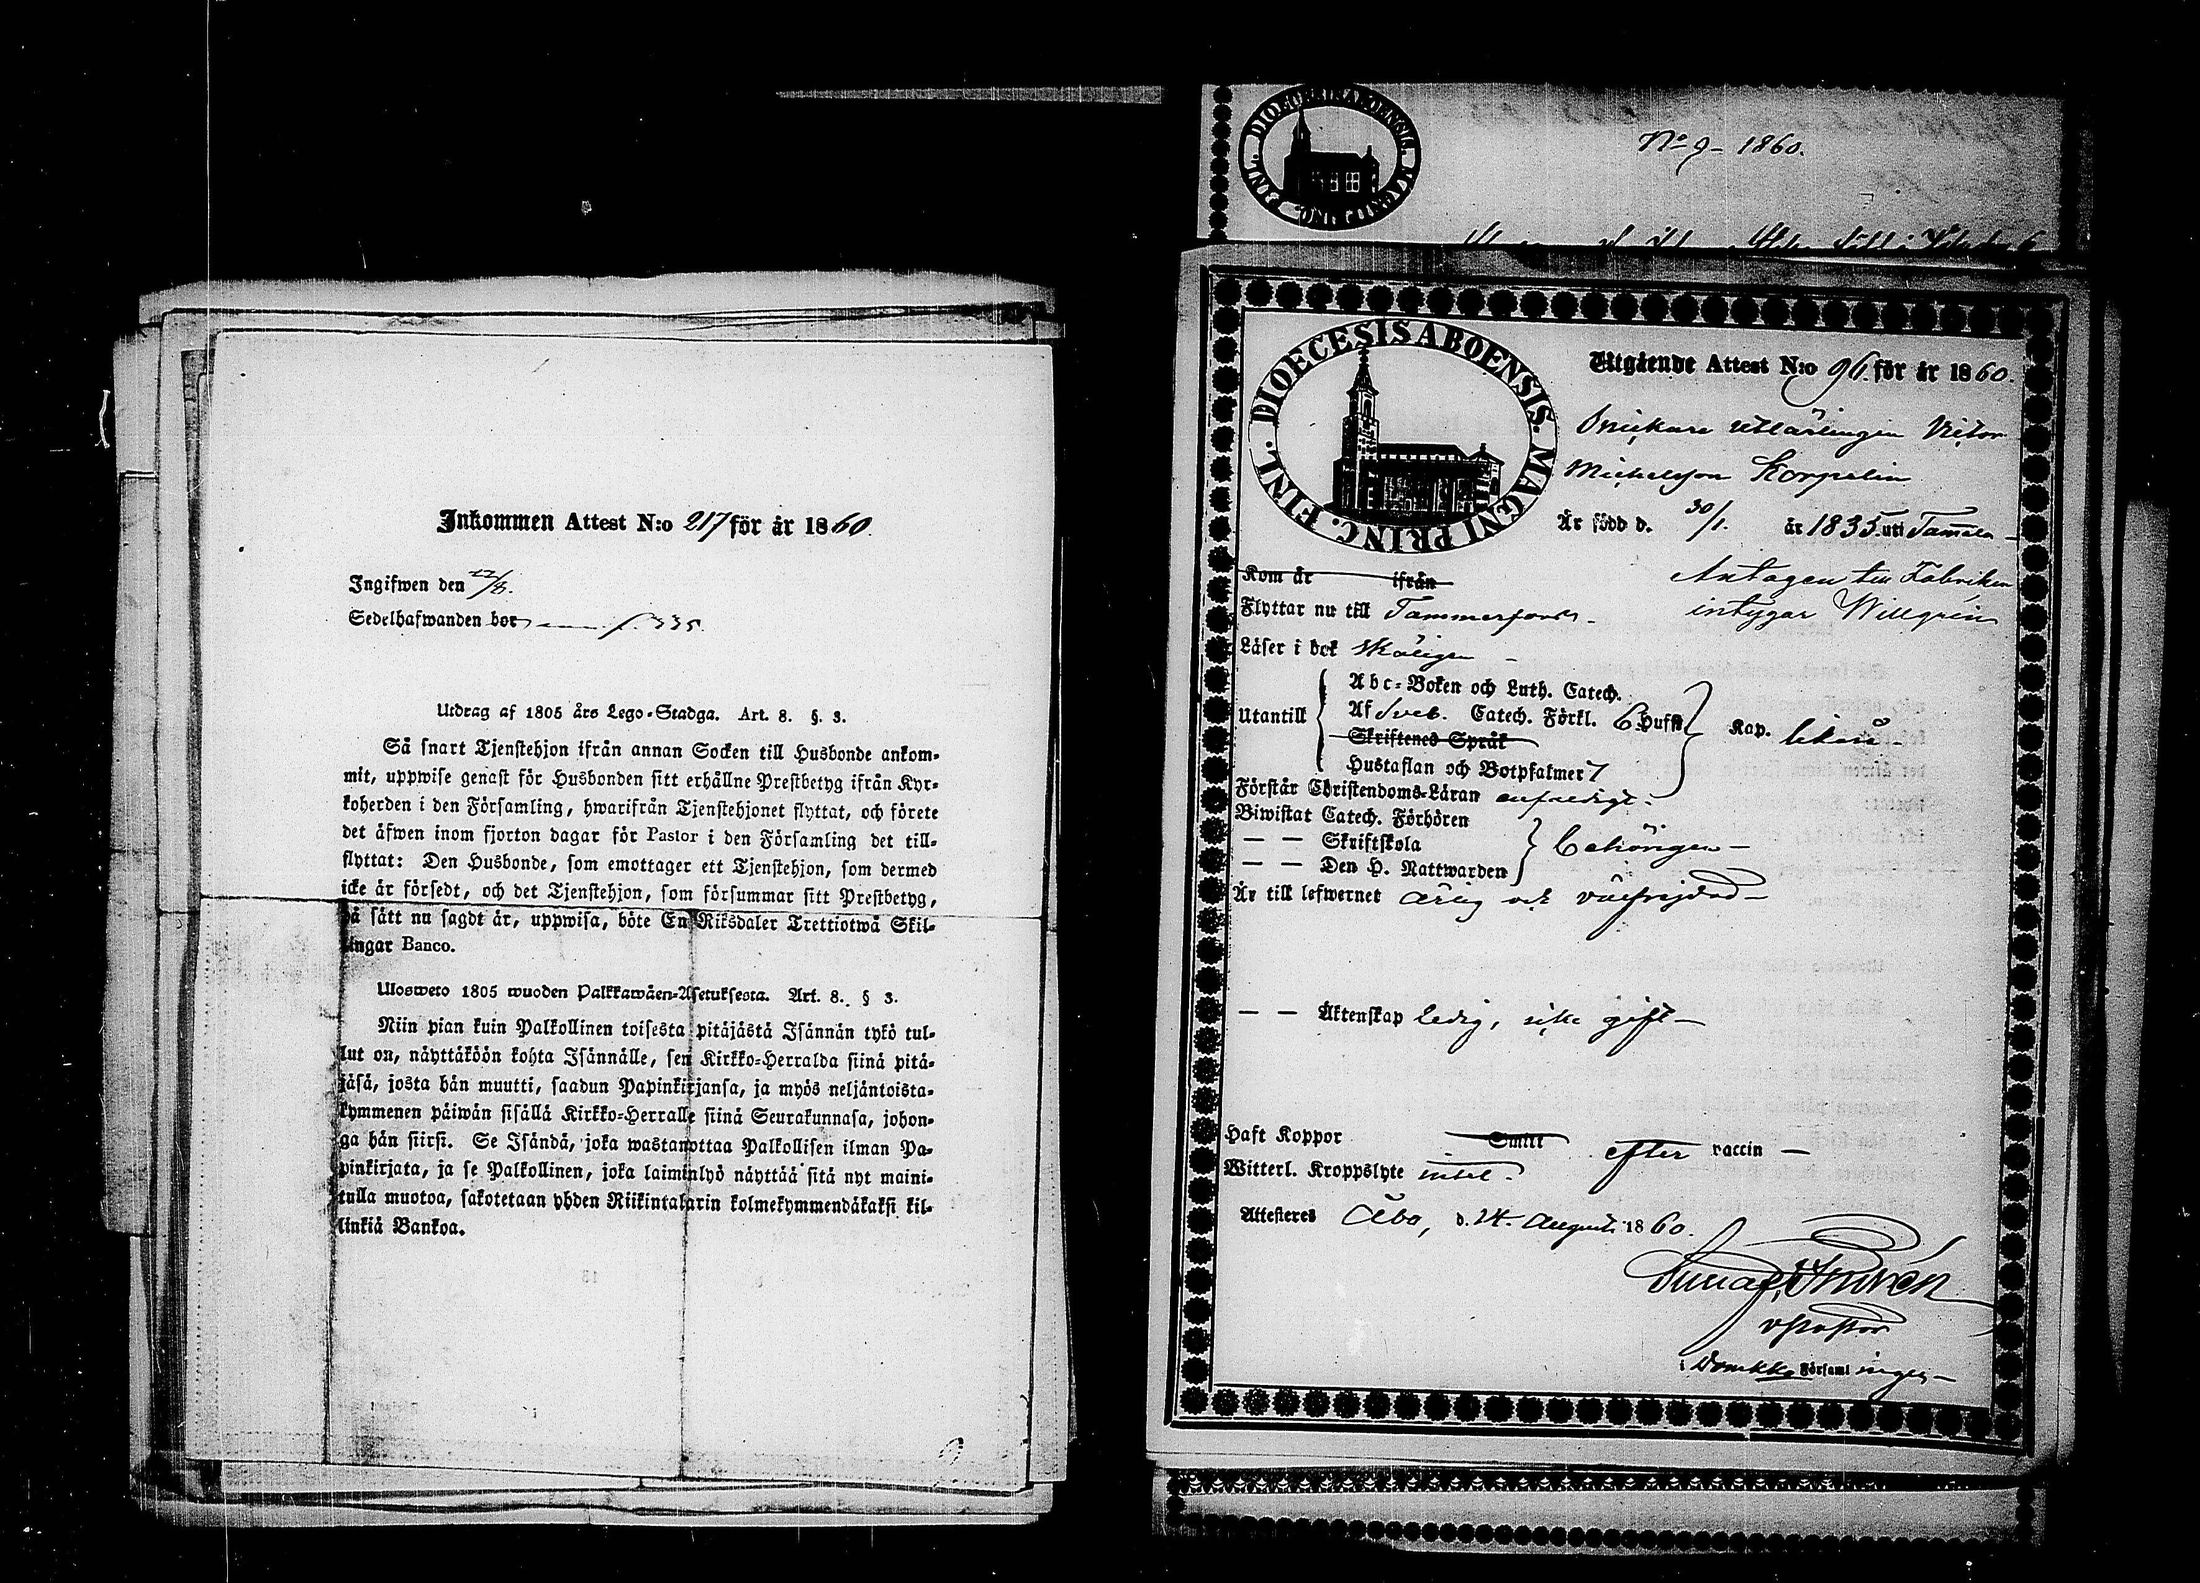 Inkommen Attest N:o 217 för år 1860.
Ingifwen den 22/8.
Sedelhafwanden bor f. 335.
Utdrag af 1805 års Lego-Stadga. Art. 8. §. 3.
Så snart Tjenstehjon ifrån annan Socken till Husbonde ankom-
mit, uppwise genast för Husbonden sitt erhållne Prestbetyg ifrån Kyr-
koherden i den Församling, hwarifrån Tjenstehjonet flyttat, och förete
det äfwen inom fjorton dagar för Pastor i den Församling det till-
flyttat: Den Husbonde, som emottager ett Tjenstehjon, som dermed
icke är försedt, och det Tjenstehjon, som försummar sitt Prestbetyg,
på sätt nu sagdt är, uppwisa, böte En Riksdaler Trettiotwå Skil-
lingar Banco.
Ulosweto 1805 wuoden Palkkawäen-Asetuksesta. Art. 8. § 3.
Niin pian kuin Palkollinen toisesta pitäjästä Isännän tykö tul-
lut on, näyttäköön kohta Isännälle, sen Kirkko-Herralda siinä pitä-
jäsä, josta hän muutti, saadun Papinkirjansa, ja myös neljäntoista-
kymmenen päiwän sisällä Kirkko-Herralle siinä Seurakunnasa, johon-
ga hän siirsi. Se Isändä, joka wastanottaa Palkollisen ilman Pa-
pinkirjata, ja se Palkollinen, joka laiminlyö näyttää sitä nyt maini-
tulla muotoa, sakotetaan yhden Riikintalarin kolmekymmendäkaksi kil-
linkiä Bankoa.
No 9 - 1860.
FINL. DIOECESIS ABOENSIS. MAGNI PRINC.
FINL. DIOECESIS ABOENSIS. MAGNI PRINC.
Utgående Attest N:o 96. för år 1860.
Snickare utlärlingen Victor
Michelsson Korpelin
Är född d. 30/1. år 1835. uti Tammela
Kom år ifrån Antagen till Fabriken
Flyttar nu till Tammerfors intygar Willgrén
Läser i bok skäligen
Utantill
Abc-Boken och Luth. Catech.
Af Sveb. Catech. Förkl. 6 Hufst
Skriftenes Språk
Hustaflan och Botpsalmer 7
Kap. likaså
Förstår Christendoms-Läran enfaldigt.
Biwistat Catech. Förhören
— — Skriftskola behörigen —
— — Den H. Nattwarden
Är till lefwernet ärlig och välfrejdad —
— — Äktenskap ledig, icke gift —
Haft Koppor Smitt efter vaccin —
Witterl. Kroppslyte intet.
Attesteres Åbo, d. 24. Augusti 1860.
v Pastor
i Domkko Församl ingen —